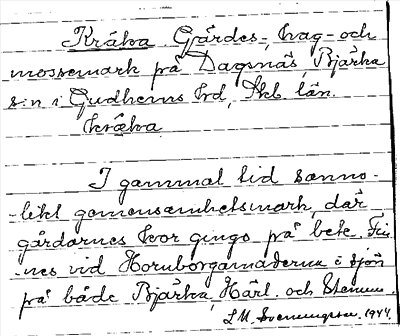 Kråka Gärdes-, hag- och
mossemark på Dagsnäs, Bjärka
s:n i Gudhems hd, Skb. län.
kråka
I gammal tid sanno-
-likt gemensamhetsmark, där
gårdarnes kor gingo på bete. Fin-
nes vid Hornborgamaderna i sjön
på både Bjärka, Härl. och Stenum.
L M Svenungsson 1944.